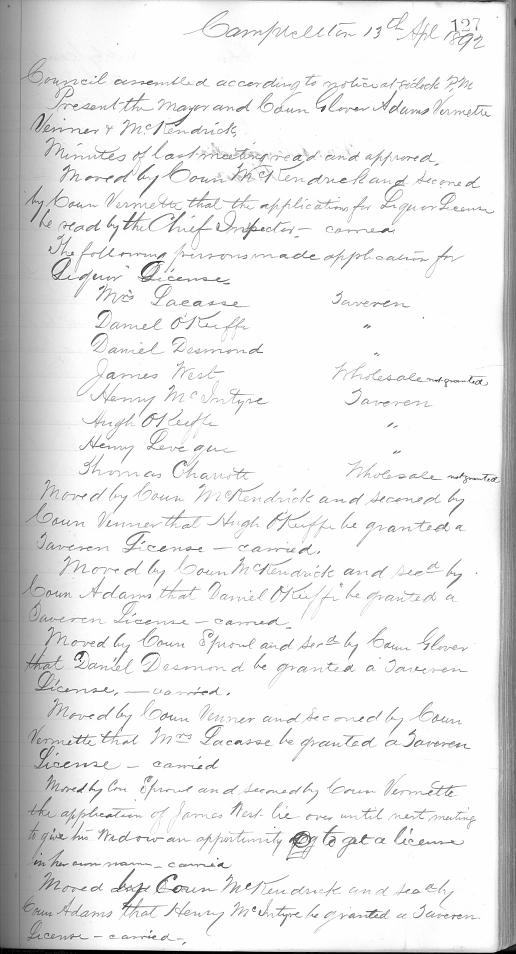 127
Campbellton 13th Apl 1892
Council assembled according to notice at 8 oclock P.M
Present the Mayor and Coun Glover Adams Vermette
Venner & McKendrick,
Minutes of last meeting read and approved.
Moved by Coun McKendrick and seconed
by Coun Vermette that the applications for Liquor License
be read by the Chief Inspector – carried
The following persons made application for
Liquor License.
Mrs Lacasse Taveren
Daniel O'Keiffe "
Daniel Desmond "
James West Wholesale not granted
Henry McIntyre Taveren
Hugh OKeiffe "
Henry Levegue "
Thomas Charott Wholesale not granted
Moved by Coun McKendrick and seconed by
Coun Venner that Hugh OKeiffe be granted a
Taveren License – carried.
Moved by Coun McKendrick and secd by
Coun Adams that Daniel OKeiffe be granted a
Taveren License – carried.
Moved by Coun Sproul and secd by Coun Glover
that Daniel Desmond be granted a Taveren
License. – carried.
Moved by Coun Venner and seconed by Coun
Vermette that Mrs Lacasse be granted a Taveren
License – carried
Moved by Cou Sproul and seconed by Coun Vermette
the application of James West lie over until next meeting
to give his Widow an opportunity to get a license
in her own name – carried
Moved by Coun McKendrick and secd by
Coun Adams that Henry McIntyre be granted a Taveren
License – carried –.